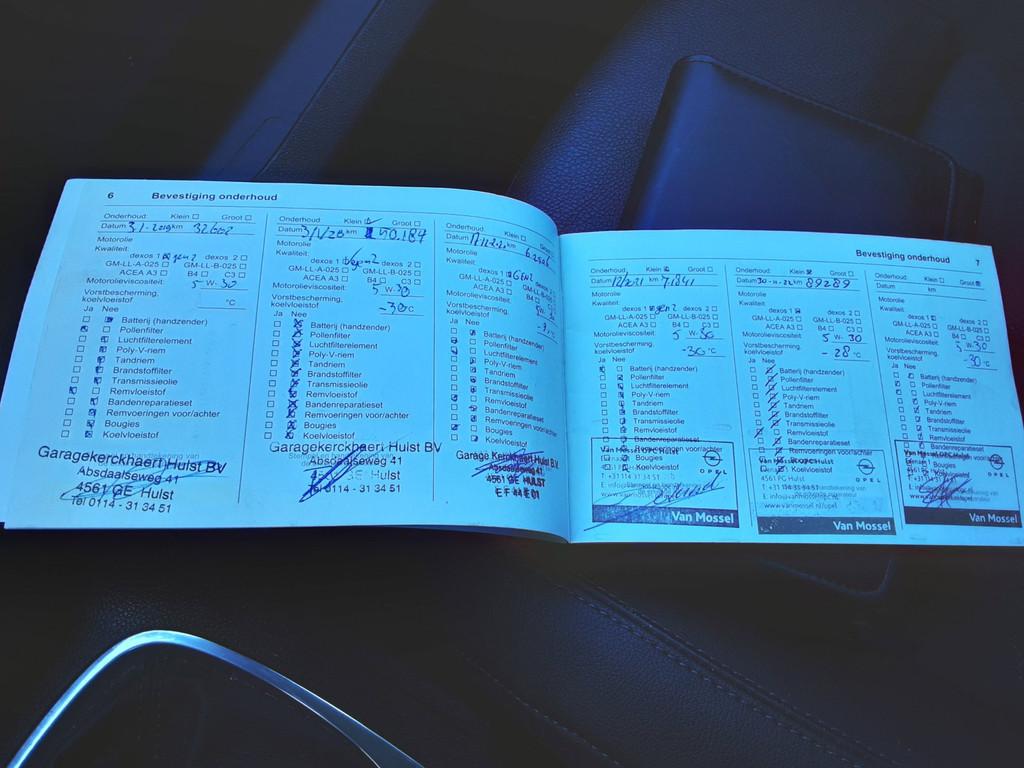 6 Bevestiging onderhoud
Onderhoud: Klein Groot
Datum 3.1-2019 km
Motorolie
Kwaliteit:
dexos 1 gen2 dexos 2
GM-LL-A-025 GM-LL-B-025
ACEA A3 B4 C3
Motorolieviscositeit: 5 W- 30
Vorstbescherming, koelvloeistof °C
Ja Nee
Batterij (handzender)
Pollenfilter
Luchtfilterelement
Poly-V-riem
Tandriem
Brandstoffilter
Transmissieolie
Remvloeistof
Bandenreparatieset
Remvoeringen voor/achter
Bougies
Koelvloeistof
Garagekerckhaert Hulst BV
Absdaalseweg 41
4561 GE Hulst
Tel 0114 - 31 34 51
Onderhoud: Klein Groot
Datum 3/1/20 km 50.189
Motorolie
Kwaliteit:
dexos 1 gen2 dexos 2
GM-LL-A-025 GM-LL-B-025
ACEA A3 B4 C3
Motorolieviscositeit: 5 W- 30
Vorstbescherming,
koelvloeistof -30 °C
Ja Nee
Batterij (handzender)
Pollenfilter
Luchtfilterelement
Poly-V-riem
Tandriem
Brandstoffilter
Transmissieolie
Remvloeistof
Bandenreparatieset
Remvoeringen voor/achter
Bougies
Koelvloeistof
Garagekerckhaert Hulst BV
Absdaalseweg 41
Hulst
Tel 0114 - 31 34 51
Onderhoud: Klein
Datum km
Motorolie
Kwaliteit:
dexos 1 Gen2
GM-LL-A-025
ACEA A3
Motorolieviscositeit:
Vorstbescherming,
koelvloeistof
Ja Nee
Batterij (handzender)
Pollenfilter
Luchtfilterelement
Poly-V-riem
Tandriem
Brandstoffilter
Transmissieolie
Remvloeistof
Bandenreparatieset
Remvoeringen
Bougies
Koelvloeistof
Garage Kerckhaert Hulst B.V.
Absdaalseweg 41
4561 GE HULST
Bevestiging onderhoud 7
Onderhoud: Klein Groot
Datum 12/2021 km 71841
Motorolie
Kwaliteit:
dexos 1 gen2 dexos 2
GM-LL-A-025 GM-LL-B-025
ACEA A3 B4 C3
Motorolieviscositeit: 5 W- 30
Vorstbescherming,
koelvloeistof -30 °C
Ja Nee
Batterij (handzender)
Pollenfilter
Luchtfilterelement
Poly-V-riem
Tandriem
Brandstoffilter
Transmissieolie
Remvloeistof
Bandenreparatieset
Remvoeringen voor/achter
Bougies
Koelvloeistof
OPEL
Van Mossel
Onderhoud: Klein Groot
Datum 30-11-22 km 89289
Motorolie
Kwaliteit:
dexos 1 dexos 2
GM-LL-A-025 GM-LL-B-025
ACEA A3 B4 C3
Motorolieviscositeit: 5 W- 30
Vorstbescherming,
koelvloeistof -28 °C
Ja Nee
Batterij (handzender)
Pollenfilter
Luchtfilterelement
Poly-V-riem
Tandriem
Brandstoffilter
Transmissieolie
Remvloeistof
Bandenreparatieset
Remvoeringen voor/achter
4561 PG Hulst
www.vanmossel.nl/opel
OPEL
Van Mossel
Onderhoud: Klein Groot
Datum km
Motorolie
Kwaliteit:
dexos 1 dexos 2
GM-LL-A-025 GM-LL-B-025
ACEA A3 B4 C3
Motorolieviscositeit: 5 W 30
Vorstbescherming,
koelvloeistof -30 °C
Ja Nee
Batterij (handzender)
Pollenfilter
Luchtfilterelement
Poly-V-riem
Tandriem
Brandstoffilter
Transmissieolie
Remvloeistof
Bandenreparatieset
OPEL
Van Mossel